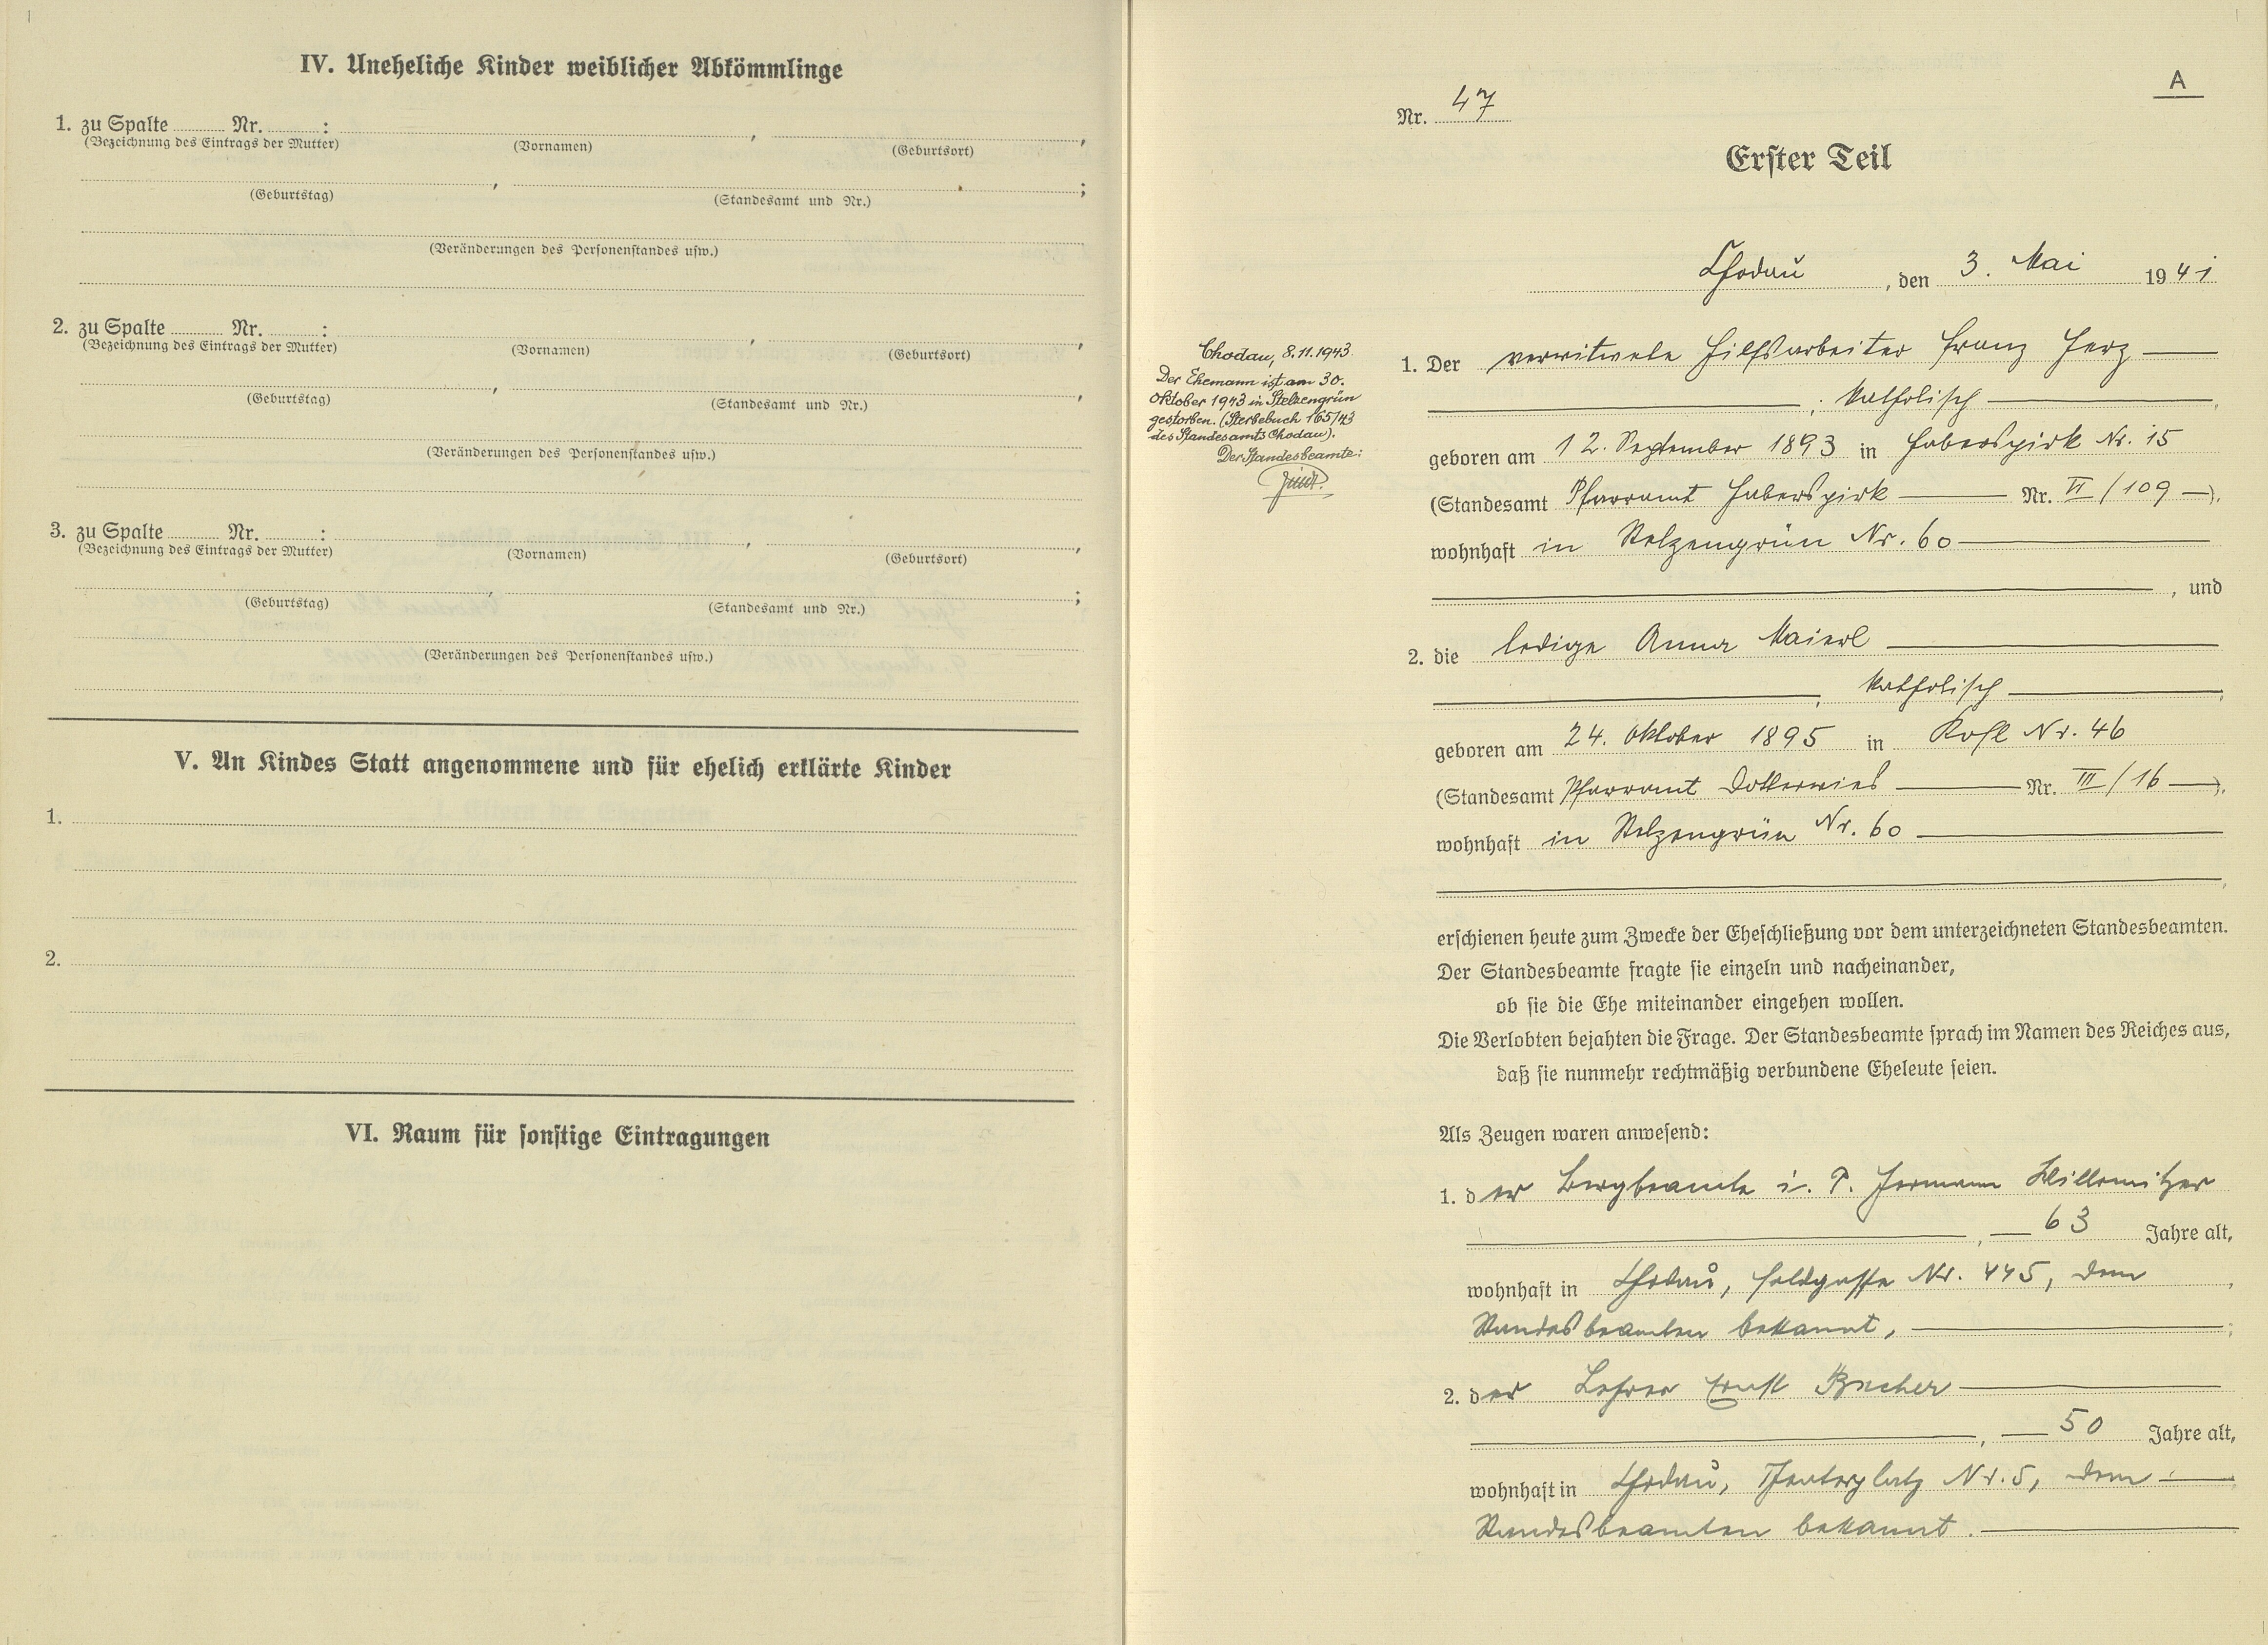 IV. Uneheliche Kinder weiblicher Abkömmlinge
1. zu Spalte ........ Nr. ........ : ........ , ........ ,
(Bezeichnung des Eintrags der Mutter) (Vornamen) (Geburtsort)
........ , ........ ;
(Geburtstag) (Standesamt und Nr.)
(Veränderungen des Personenstandes usw.)
2. zu Spalte ........ Nr. ........ : ........ , ........ ,
(Bezeichnung des Eintrags der Mutter) (Vornamen) (Geburtsort)
........ , ........ ,
(Geburtstag) (Standesamt und Nr.)
(Veränderungen des Personenstandes usw.)
3. zu Spalte ........ Nr. ........ : ........ , ........ ,
(Bezeichnung des Eintrags der Mutter) (Vornamen) (Geburtsort)
........ , ........ ;
(Geburtstag) (Standesamt und Nr.)
(Veränderungen des Personenstandes usw.)
V. An Kindes Statt angenommene und für ehelich erklärte Kinder
1.
2.
VI. Raum für sonstige Eintragungen
A
Nr. 47
Erster Teil
Chodau, den 3. Mai 1941
Chodau, 8.11.1943.
Der Ehemann ist am 30.
Oktober 1943 in Stelzengrün
gestorben. (Sterbebuch 165/43
des Standesamts Chodau).
Der Standesbeamte:
1. Der verwitwete Hilfsarbeiter Franz Herz
, katholisch ,
geboren am 12. September 1893 in Haberspirk Nr. 15
(Standesamt Pfarramt Haberspirk Nr. VI/109 ),
wohnhaft in Stelzengrün Nr. 60
, und
2. die ledige Anna Maierl
, katholisch ,
geboren am 24. Oktober 1895 in Kohl Nr. 46
(Standesamt Pfarramt Dotterwies Nr. III/16 ),
wohnhaft in Stelzengrün Nr. 60
,
erschienen heute zum Zwecke der Eheschließung vor dem unterzeichneten Standesbeamten.
Der Standesbeamte fragte sie einzeln und nacheinander,
ob sie die Ehe miteinander eingehen wollen.
Die Verlobten bejahten die Frage. Der Standesbeamte sprach im Namen des Reiches aus,
daß sie nunmehr rechtmäßig verbundene Eheleute seien.
Als Zeugen waren anwesend:
1. der Bergbeamte i. P. Hermann Willomitzer
, 63 Jahre alt,
wohnhaft in Chodau, Feldgasse Nr. 445, dem ,
Standesbeamten bekannt, ;
2. der Lehrer Ernst Bucher
, 50 Jahre alt,
wohnhaft in Chodau, Theaterplatz Nr. 5, dem
Standesbeamten bekannt.